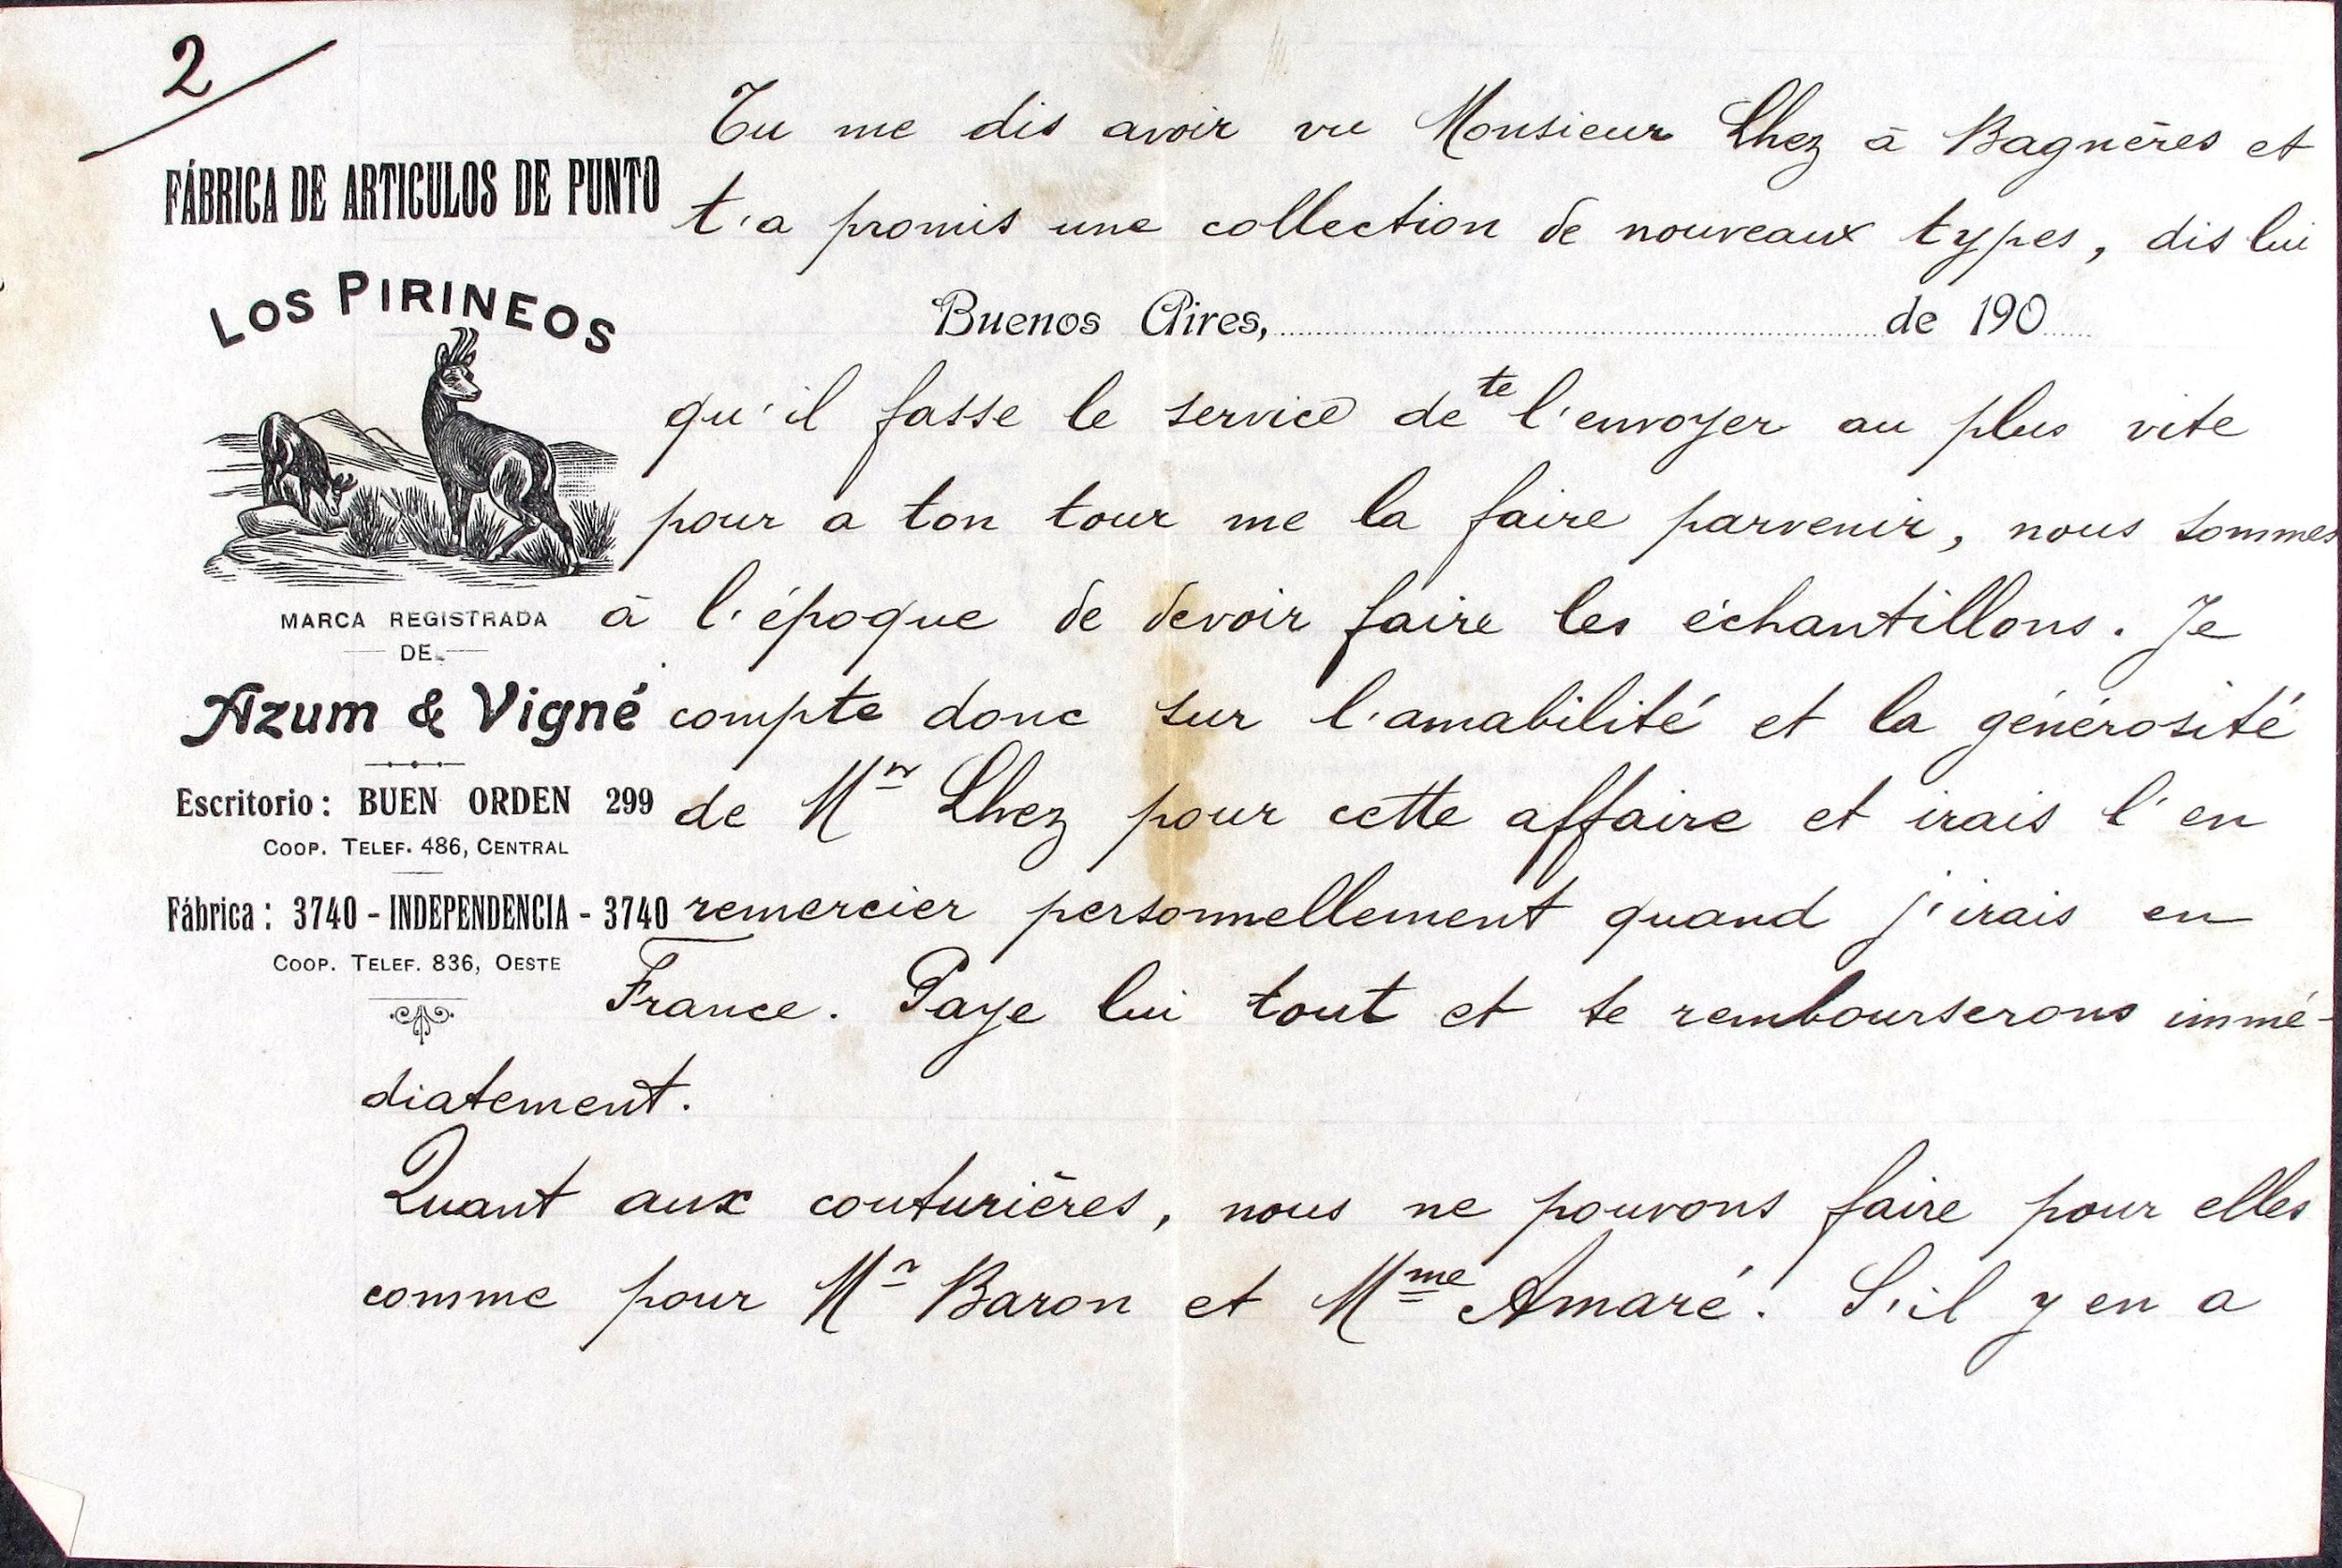 2/
FÁBRICA DE ARTICULOS DE PUNTO
LOS PIRINEOS
MARCA REGISTRADA
DE
Azum & Vigné
Escritorio: BUEN ORDEN 299
COOP. TELEF. 486, CENTRAL
Fábrica: 3740 - INDEPENDENCIA - 3740
COOP. TELEF. 836, OESTE
Tu me dis avoir vu Monsieur Lhez à Bagnères et
t'a promis une collection de nouveaux types, dis lui
Buenos Aires, de 190
qu'il fasse le service de te l'envoyer au plus vite
pour a ton tour me la faire parvenir, nous sommes
à l'époque de devoir faire les échantillons. Je
compte donc sur l'amabilité et la générosité
de Mr Lhez pour cette affaire et irais l'en
remercier personnellement quand j'irais en
France. Paye lui tout et te rembourserons immé-
diatement.
Quant aux couturières, nous ne pouvons faire pour elles
comme pour Mr Baron et Mme Amaré. S'il y en a